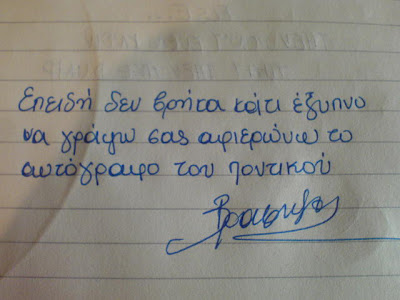 Επειδή δεν βρήκα κάτι έξυπνο
να γράψω σας αφιερώνω το
αυτόγραφο του ποντικού